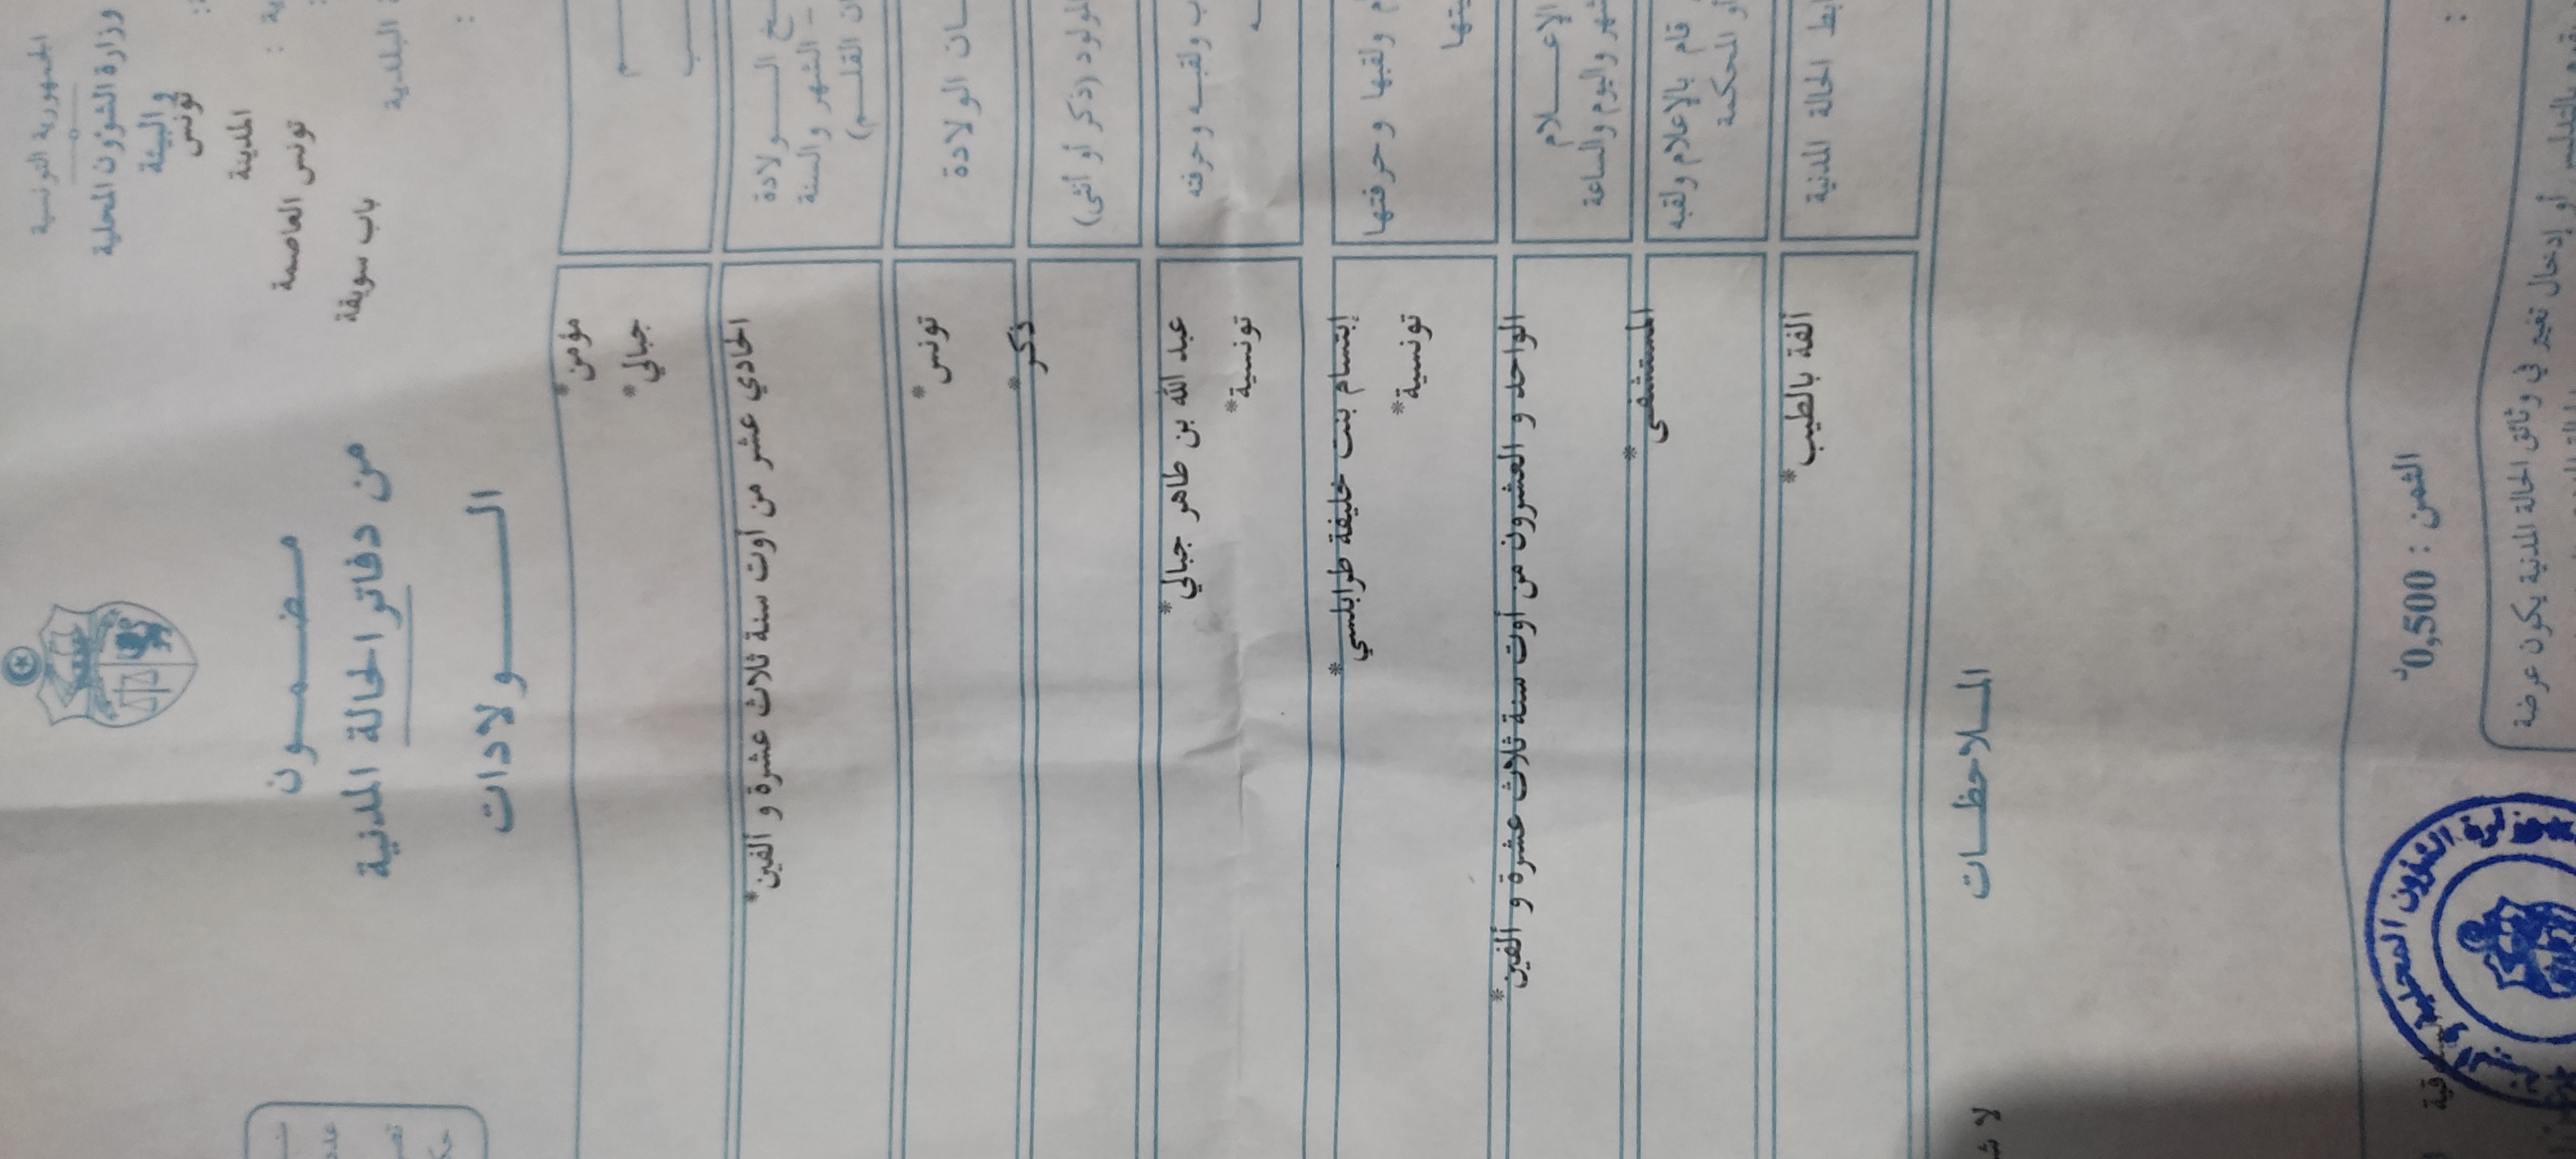 الجمهورية التونسية
وزارة الشؤون المحلية
و البيئة
تونس
المدينة
تونس العاصمة
باب سويقة
البلدية
مضمون
من دفاتر الحالة المدنية
الولادات
مؤمن*
جبالي*
الولادة
الشهر والسنة
القلم)
الحادي عشر من أوت سنة ثلاث عشرة و ألفين*
الولادة
تونس*
(ذكر أو أنثى)
ذكر*
ولقبه وحرفته
عبد الله بن طاهر جبالي*
تونسية*
ولقبها وحرفتها
إبتسام بنت خليفة طرابلسي*
تونسية*
الإعلام
واليوم والساعة
الواحد و العشرون من أوت سنة ثلاث عشرة و ألفين*
قام بالإعلام ولقبه
أو المحكمة
المستشفى*
الحالة المدنية
ألفة بالطيب*
الملاحظات
الثمن : 0,500د
أو إدخال تغيير في وثائق الحالة المدنية يكون عرضة
الشؤون المحلية